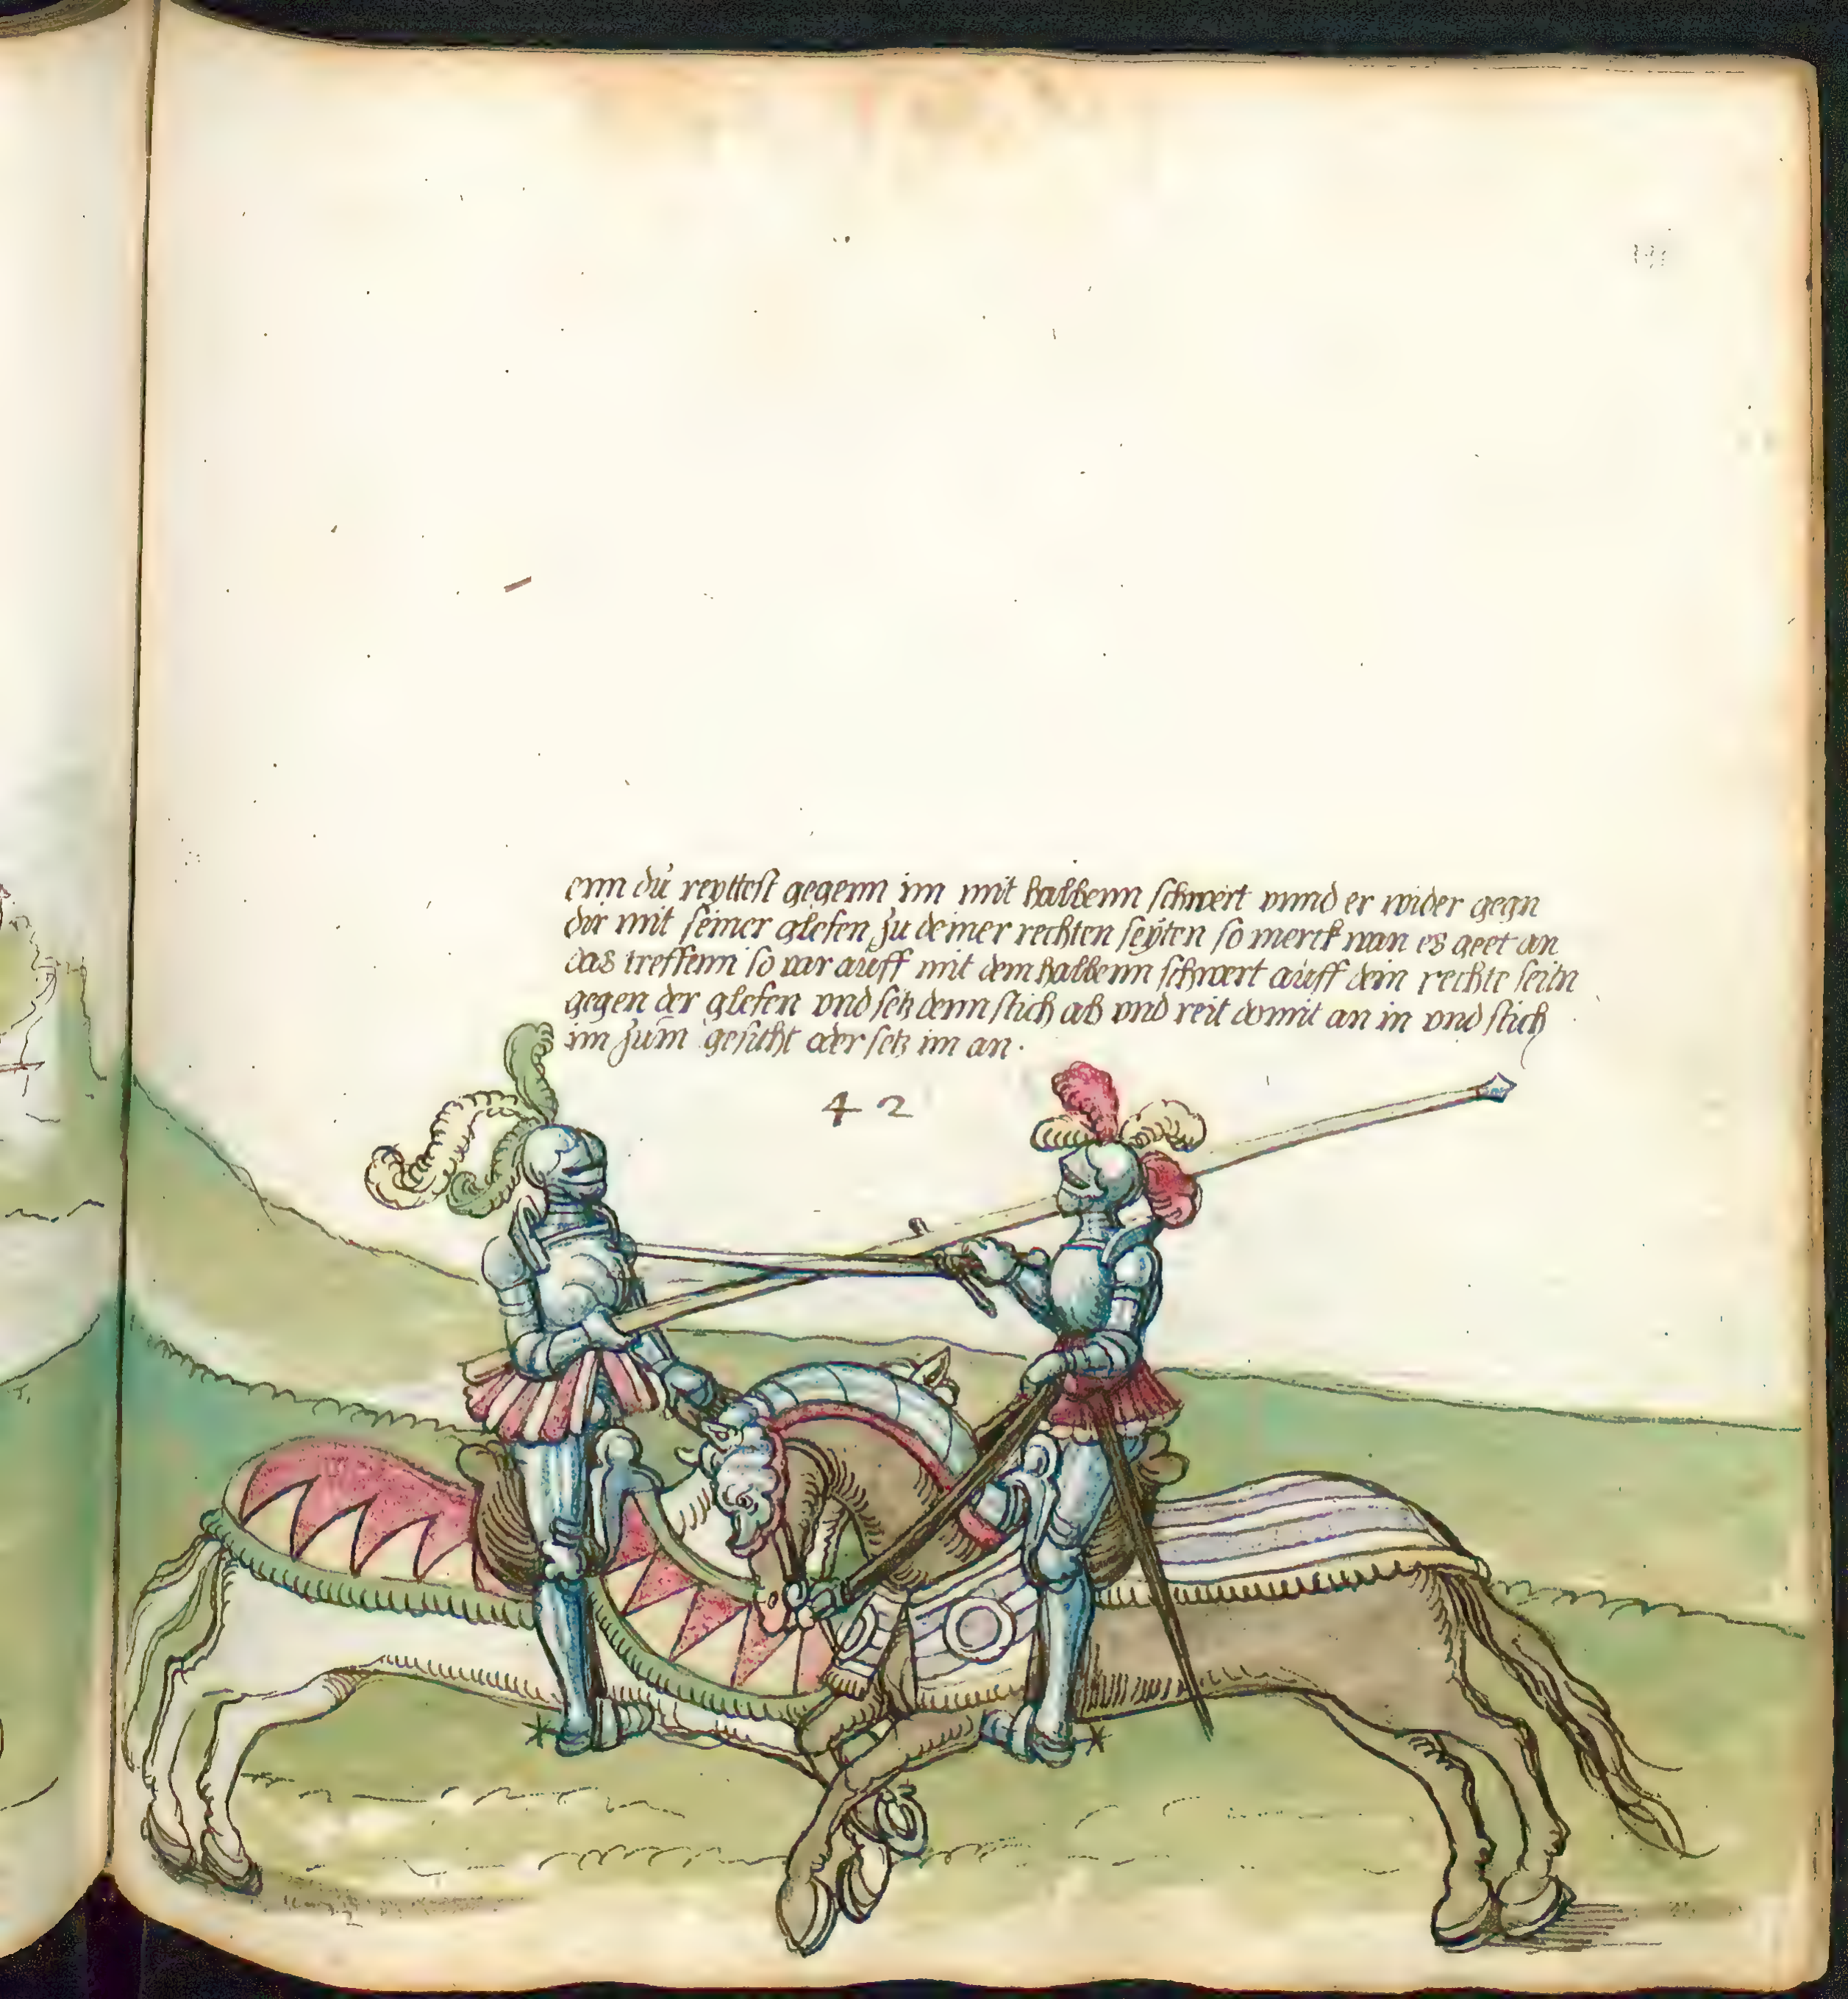 enn du reyttest gegenn im mit halbenn schwert vnnd er wider gegn
dir mit seiner glefen zu deiner rechten seyten so merck wan es geet an
das treffenn so var auff mit dem halbenn schwert auff dein rechte seitn
gegen der glefen vnd setz denn stich ab vnd reit domit an in vnd stich
im zum gesicht oder setz im an ·
42